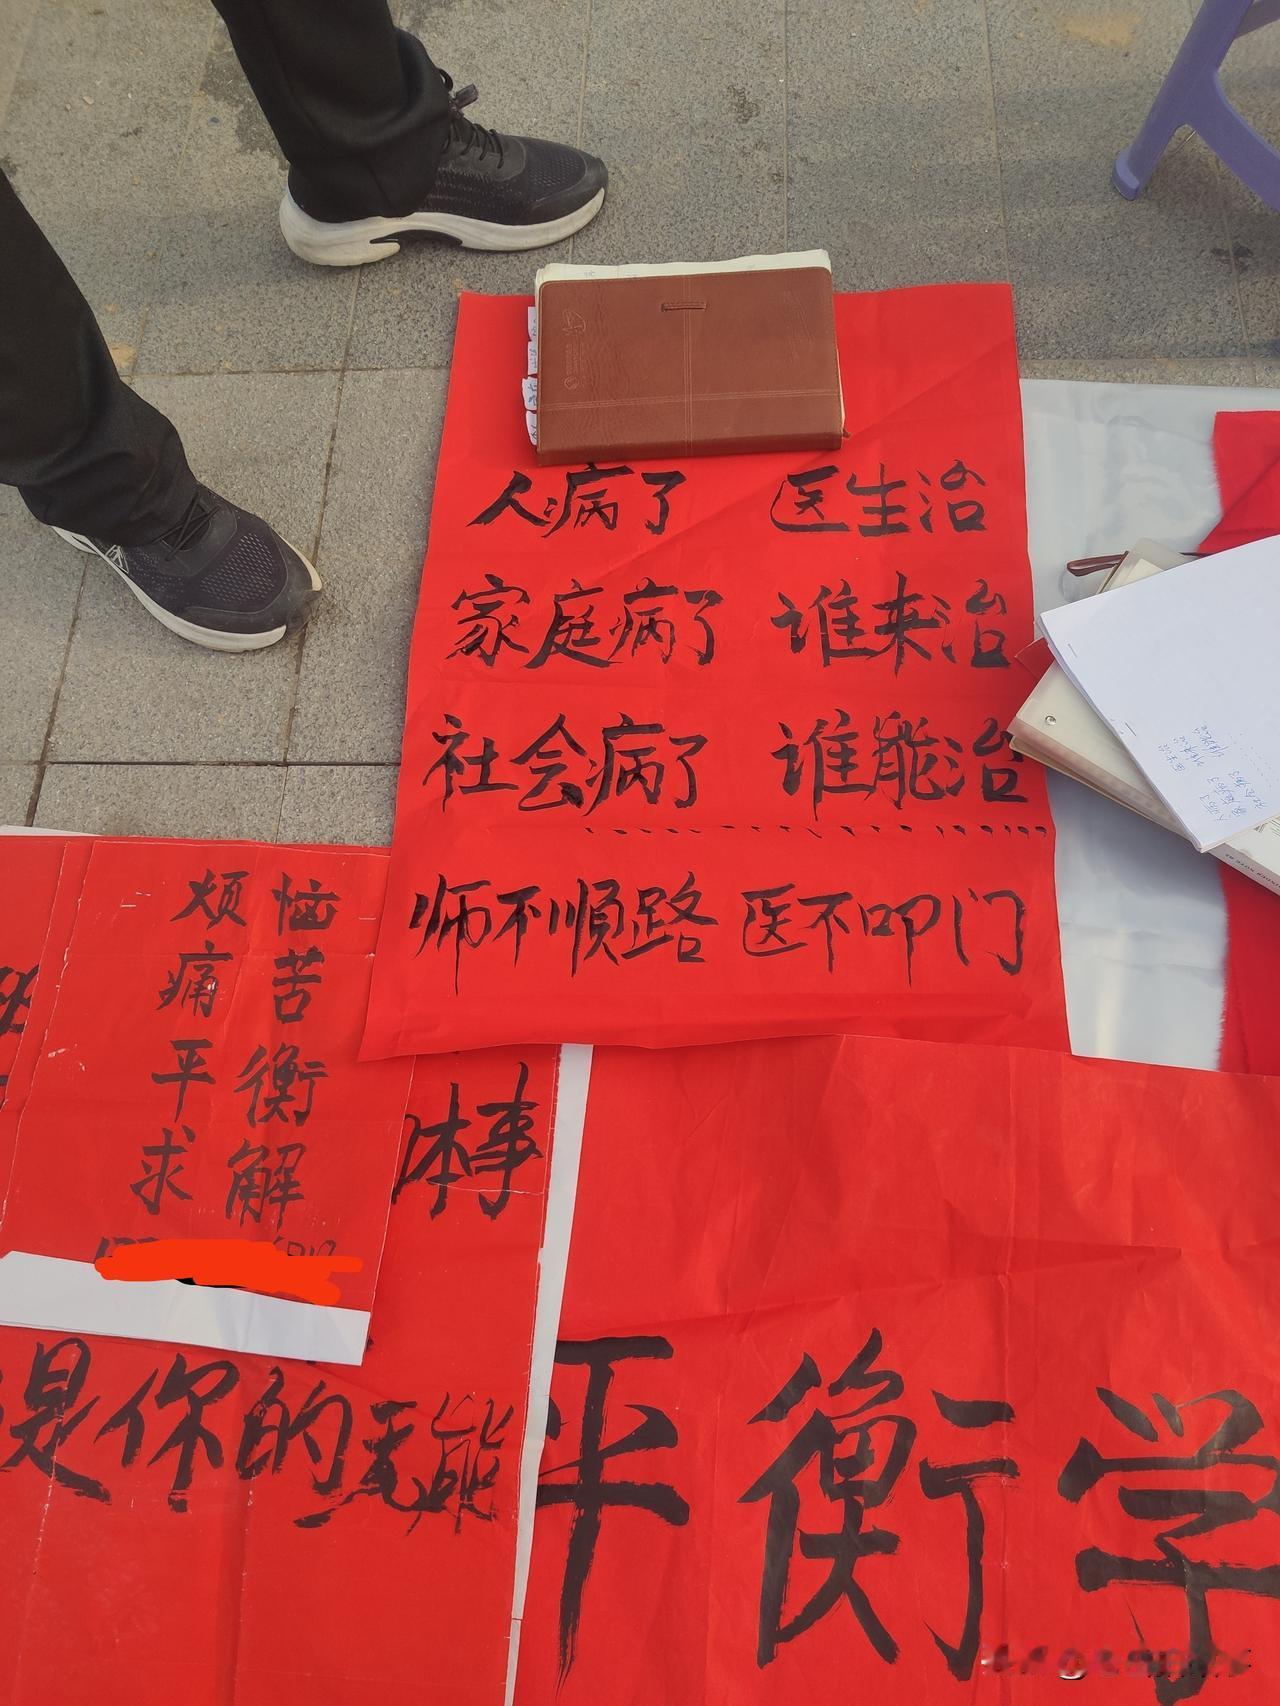 人病了 医生治
家庭病了 谁来治
社会病了 谁能治
师不顺路 医不叩门
烦恼
痛苦
平衡
求解
本事
是你的无能
平衡学